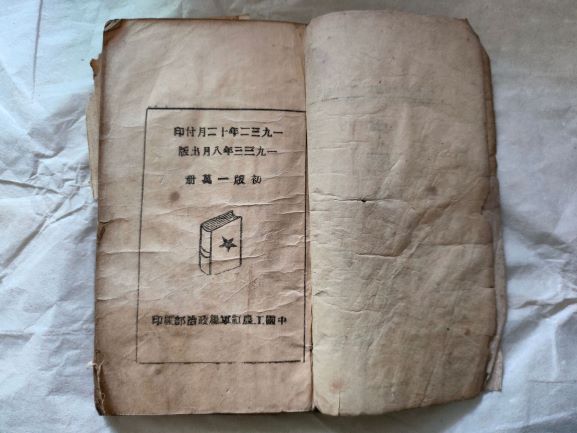 一九三二年十二月付印
一九三三年八月出版
初版一萬册
中國工農紅軍總政治部印